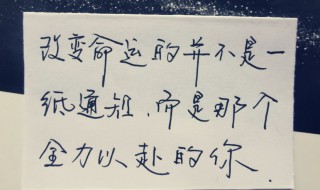 改变命运的并不是一
纸通知，而是那个
全力以赴的你.